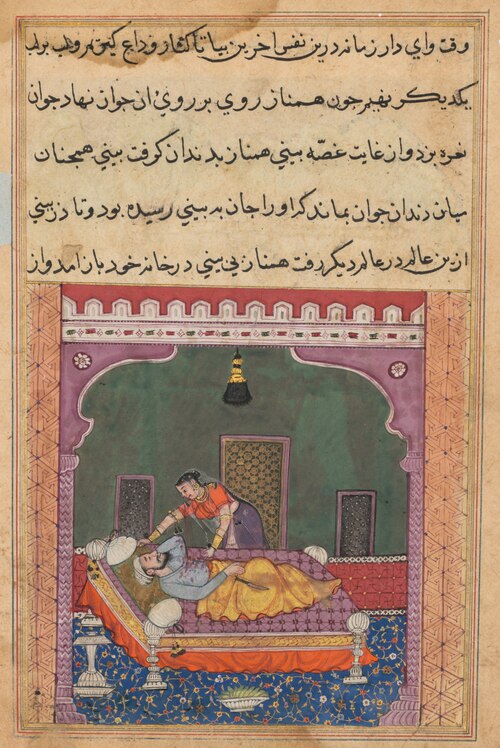 وقت واي دار زمانه درين نفس اخرين بيا تا كنار وداع كنيم و لب بر لب
يكديكر نهيم چون همناز روي بر روي ان جوان نهاد جوان
نعره بزد و از غايت غصّه بيني همناز بدندان كرفت بيني همچنان
ميان دندان جوان بماند مكر او را جان به بيني رسيده بود و تا در بيني
ازين عالم در عالم ديكر رفت همناز بي بيني در خانه خود باز امد و از